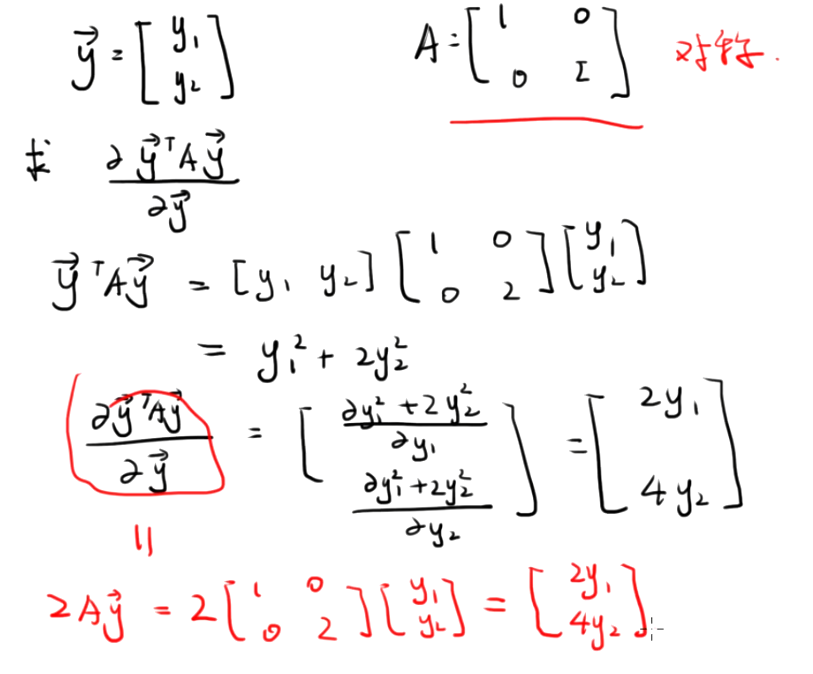 y⃗ = [y₁ y₂] A = [1 0 0 2] 对称.
求 ∂y⃗ᵀAy⃗ / ∂y⃗
y⃗ᵀAy⃗ = [y₁ y₂] [1 0 0 2] [y₁ y₂]
= y₁² + 2y₂²
∂y⃗ᵀAy⃗ / ∂y⃗ = [∂y₁² + 2y₂² / ∂y₁ ∂y₁² + 2y₂² / ∂y₂] = [2y₁ 4y₂]
||
2Ay⃗ = 2 [1 0 0 2] [y₁ y₂] = [2y₁ 4y₂]